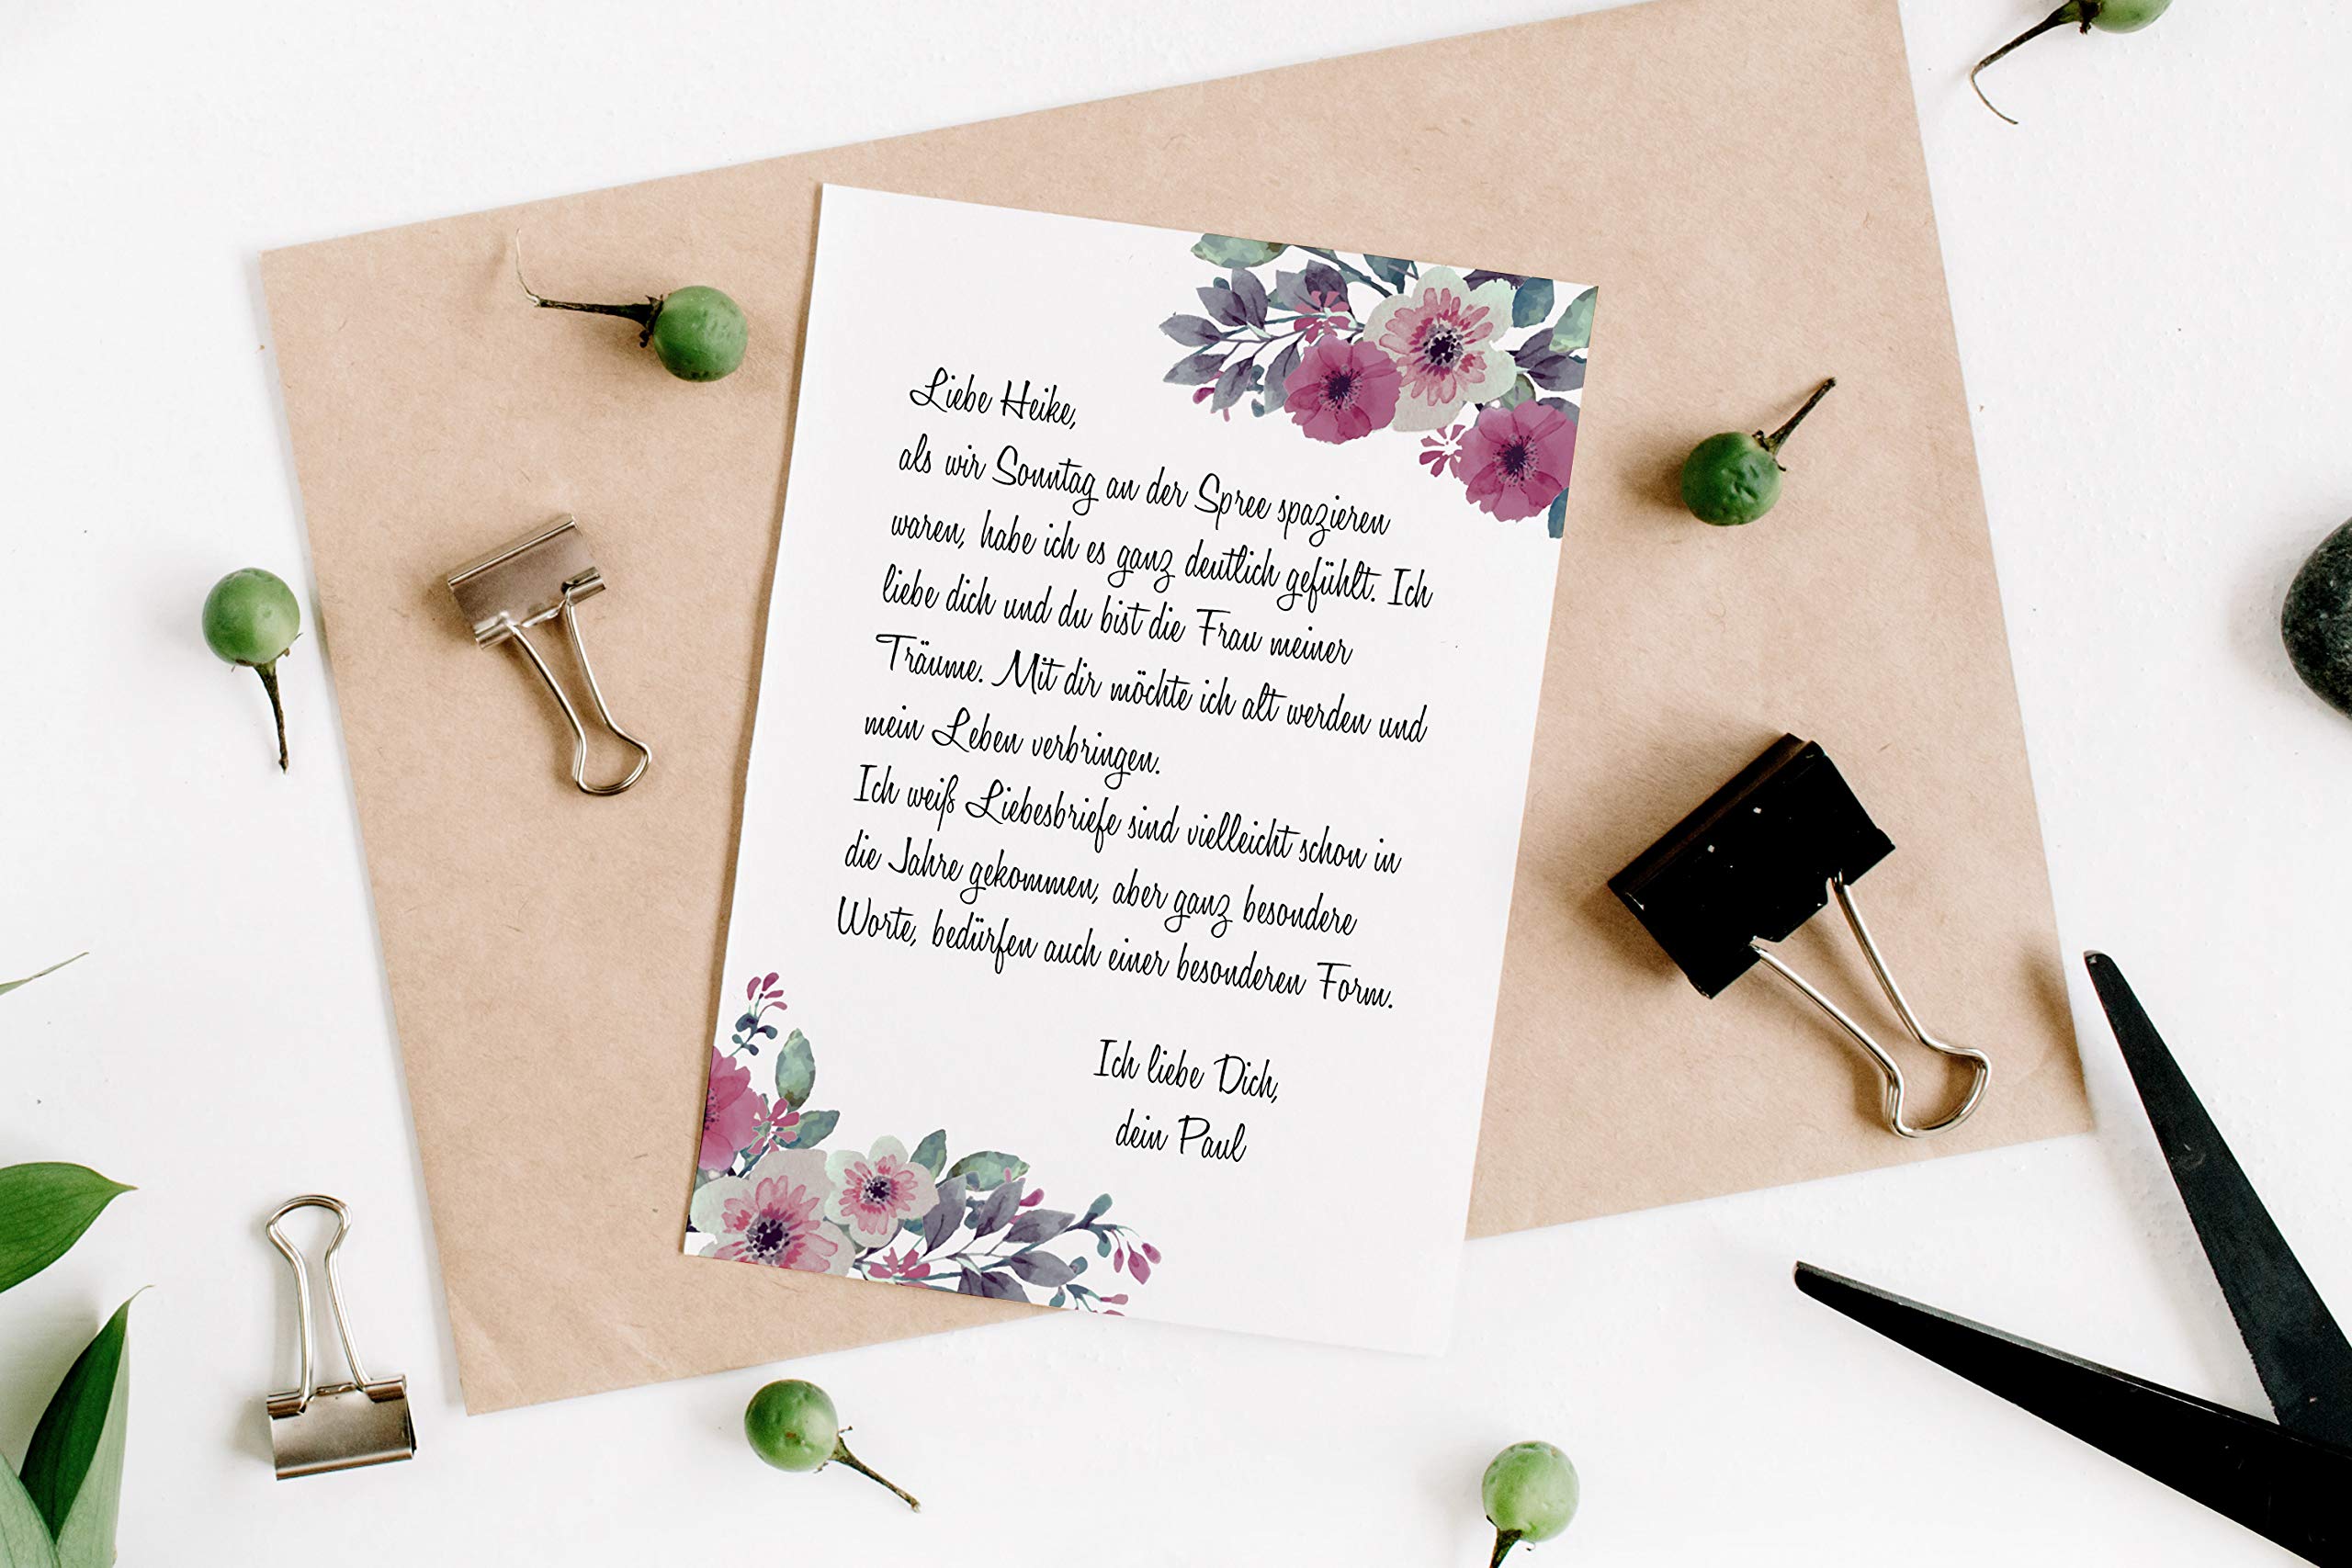 Liebe Heike,
als wir Sonntag an der Spree spazieren
waren, habe ich es ganz deutlich gefühlt. Ich
liebe dich und du bist die Frau meiner
Träume. Mit dir möchte ich alt werden und
mein Leben verbringen.
Ich weiß Liebesbriefe sind vielleicht schon in
die Jahre gekommen, aber ganz besondere
Worte, bedürfen auch einer besonderen Form.
Ich liebe Dich,
dein Paul